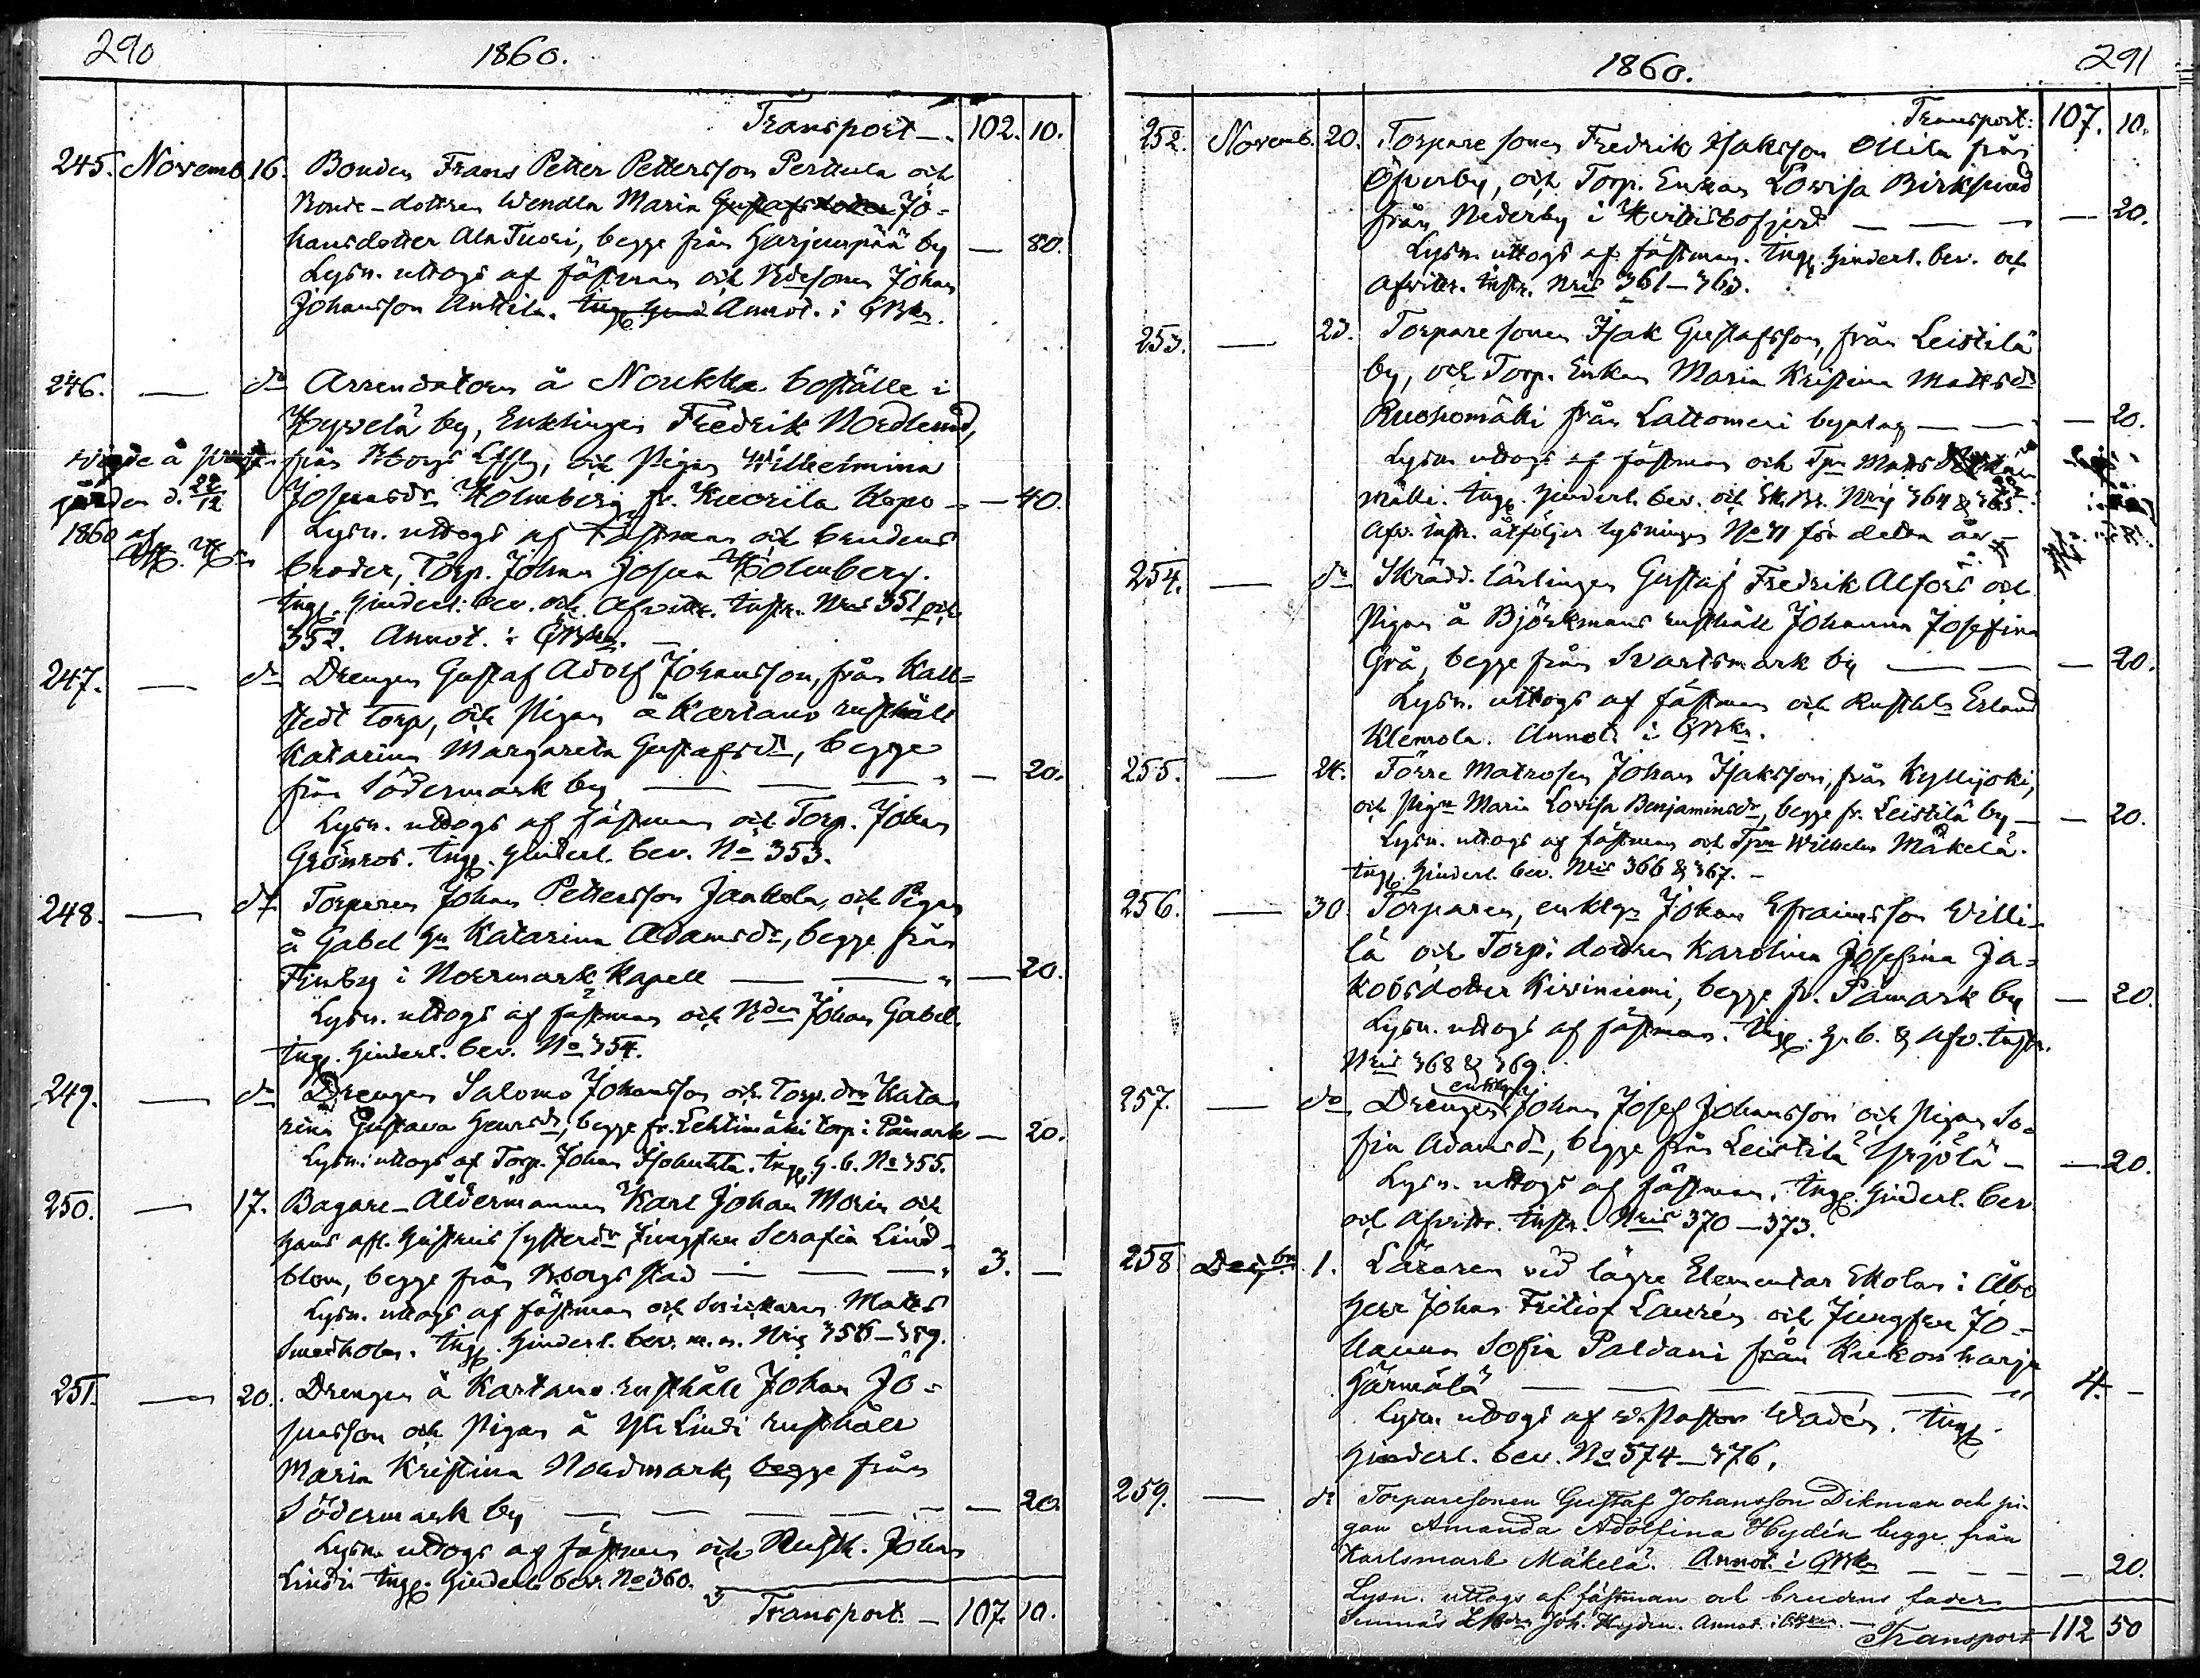 290
1860.
Transport — 102. 10.
245. Novemb. 16. Bonden Frans Petter Pettersson Perttula och
Bonde-dottren Wendla Maria Gustafsdotter Jo=
hansdotter Ala Tuori, begge från Harjunpää by — 80.
Lysn. uttogs af fästman och Bdesonen Johan
Johansson Anttila. Annot. i
246. — do Arrendatorn å Noukka boställe i
Hyvelä by, Enklingen Fredrik Nordlund,
från och Pigan Wilhelmina
Josefsdr Holmberg, fr. Kuorila Kapo — 40.
Lysn. uttogs af fästman och brudens
broder, Torp. Johan Josua Holmberg.
Ingg. hinderl. bev. och Afvittr. Instr. Nris 351 och
352. Annot. i
vigde å prest-
gården d. 22/12
1860 af
247. — do Drengen Gustaf Adolf Johansson, från Kall=
stedt torp, och Pigan å Kartano rusthåll
Katarina Margareta Gustafsdr, begge
från Södermark by — — — 20.
Lysn. uttogs af fästman och Torp. Johan
Grönroos. Ingg. hinderl. bev. No 353.
248. — do Torparen Johan Pettersson Jankola, och Pigan
å Gabel Katarina Adamsdr, begge från
Finby i Norrmark Kapell — — 20.
Lysn. uttogs af fästman och Bden Johan Gabel.
Ingg. hinderl. bev. No 354.
249. — do Drengen Salomo Johansson och Torp. drn Kata
rina Gustava Henrsdr, begge fr. Lehtimäki torp i Påmark — 20.
Lysn. uttogs af Torp. Johan Ingg. h. b. No 355.
250. — 17. Bagare-Åldermannen Karl Johan Morin och
hans afl. hustrus systerdr Jungfru Serafia Lind-
blom, begge från Bborgs stad — — 3. —
Lysn. uttogs af fästman och Snickaren Matts
Smedholm. Ingg. hinderl. bev. m.m. Nris 356—359.
251. — 20. Drengen å Kartano rusthåll Johan Jo=
suasson och Pigan å Yli Lindi rusthåll
Maria Kristina Nordmark, begge från
Södermark by — — — — 20.
Lysn. uttogs af fästman och Rusth. Johan
Lindi. Ingg. hinderl. bev. No 360.
Transport — 107. 10.
1860.
291
Transport: 107. 10.
252. Novemb. 20. Torpare sonen Fredrik Isaksson Ollila från
Öfverby, och Torp. Enkan Lovisa Birklund
från Nederby i Hvittisbofjerd — — — 20.
Lysn. uttogs af fästman. Ingg. hinderl. bev. och
afvittr. instr. Nris 361—363.
253. — 23. Torpare sonen Isak Gustafsson, från Leistilä
by, och Torp. Enkan Maria Kristina Mattsdr
Ruohomäki från Lattomeri bylag — — 20.
Lysn. uttogs af fästman och Tpn Matts
mäki. Ingg. hinderl. bev. och Nris 364 & 365.
Afv. instr. åtföljer lysningen No 41 för detta år. —
254. — do Skrädd. lärlingen Gustaf Fredrik Alfors och
Pigan å Björkmans rusthåll Johanna Josefina
Grå, begge från Svartsmark by — — — 20.
Lysn. uttogs af fästman och Rusthl. Erland
Klemola. Annot. i
255. — 24. Förre Matrosen Johan Isaksson, från Kyllijoki,
och Pigan Maria Lovisa Benjaminsdr, begge fr. Leistilä by — — 20.
Lysn. uttogs af fästman och Tpn Wilhelm Mäkelä.
Ingg. hinderl. bev. Nris 366 & 367. —
256. — 30. Torparen, enklgn Johan Efraimsson Willi-
lä och Torp. dottren Karolina Josefina Ja=
kobsdotter Kiviniemi, begge fr. Påmark by — 20.
Lysn. uttogs af fästman. Ingg. h. b. & afv. instr.
Nris 368 & 369.
257. — do Drengen, Johan Josef Johansson och Pigan So=
fia Adamsdr, begge från Leistilä Yrjölä — — 20.
Lysn. uttogs af fästman. Ingg. hinderl. bev.
och afvittr. instr. Nris 370—373.
258. Decbr. 1. Läraren vid lägre Elementar Skolan i Åbo
Herr Johan Fritiof Laurén och Jungfru Jo=
hanna Sofia Paldani från Kiukon harju
Härmälä — — — — 4. —
Lysn. uttogs af v. Pastor Wadén. Ingg.
hinderl. bev. No 374—376.
259. — do Torparesonen Gustaf Johansson Dikman och pi-
gan Amanda Adolfina Hydén begge från
Karlsmark Mäkelä. Annot. i — — — 20.
Lysn. uttogs af fästman och brudens fader
Joh. Hydén. Annot. i
Transport 112 50